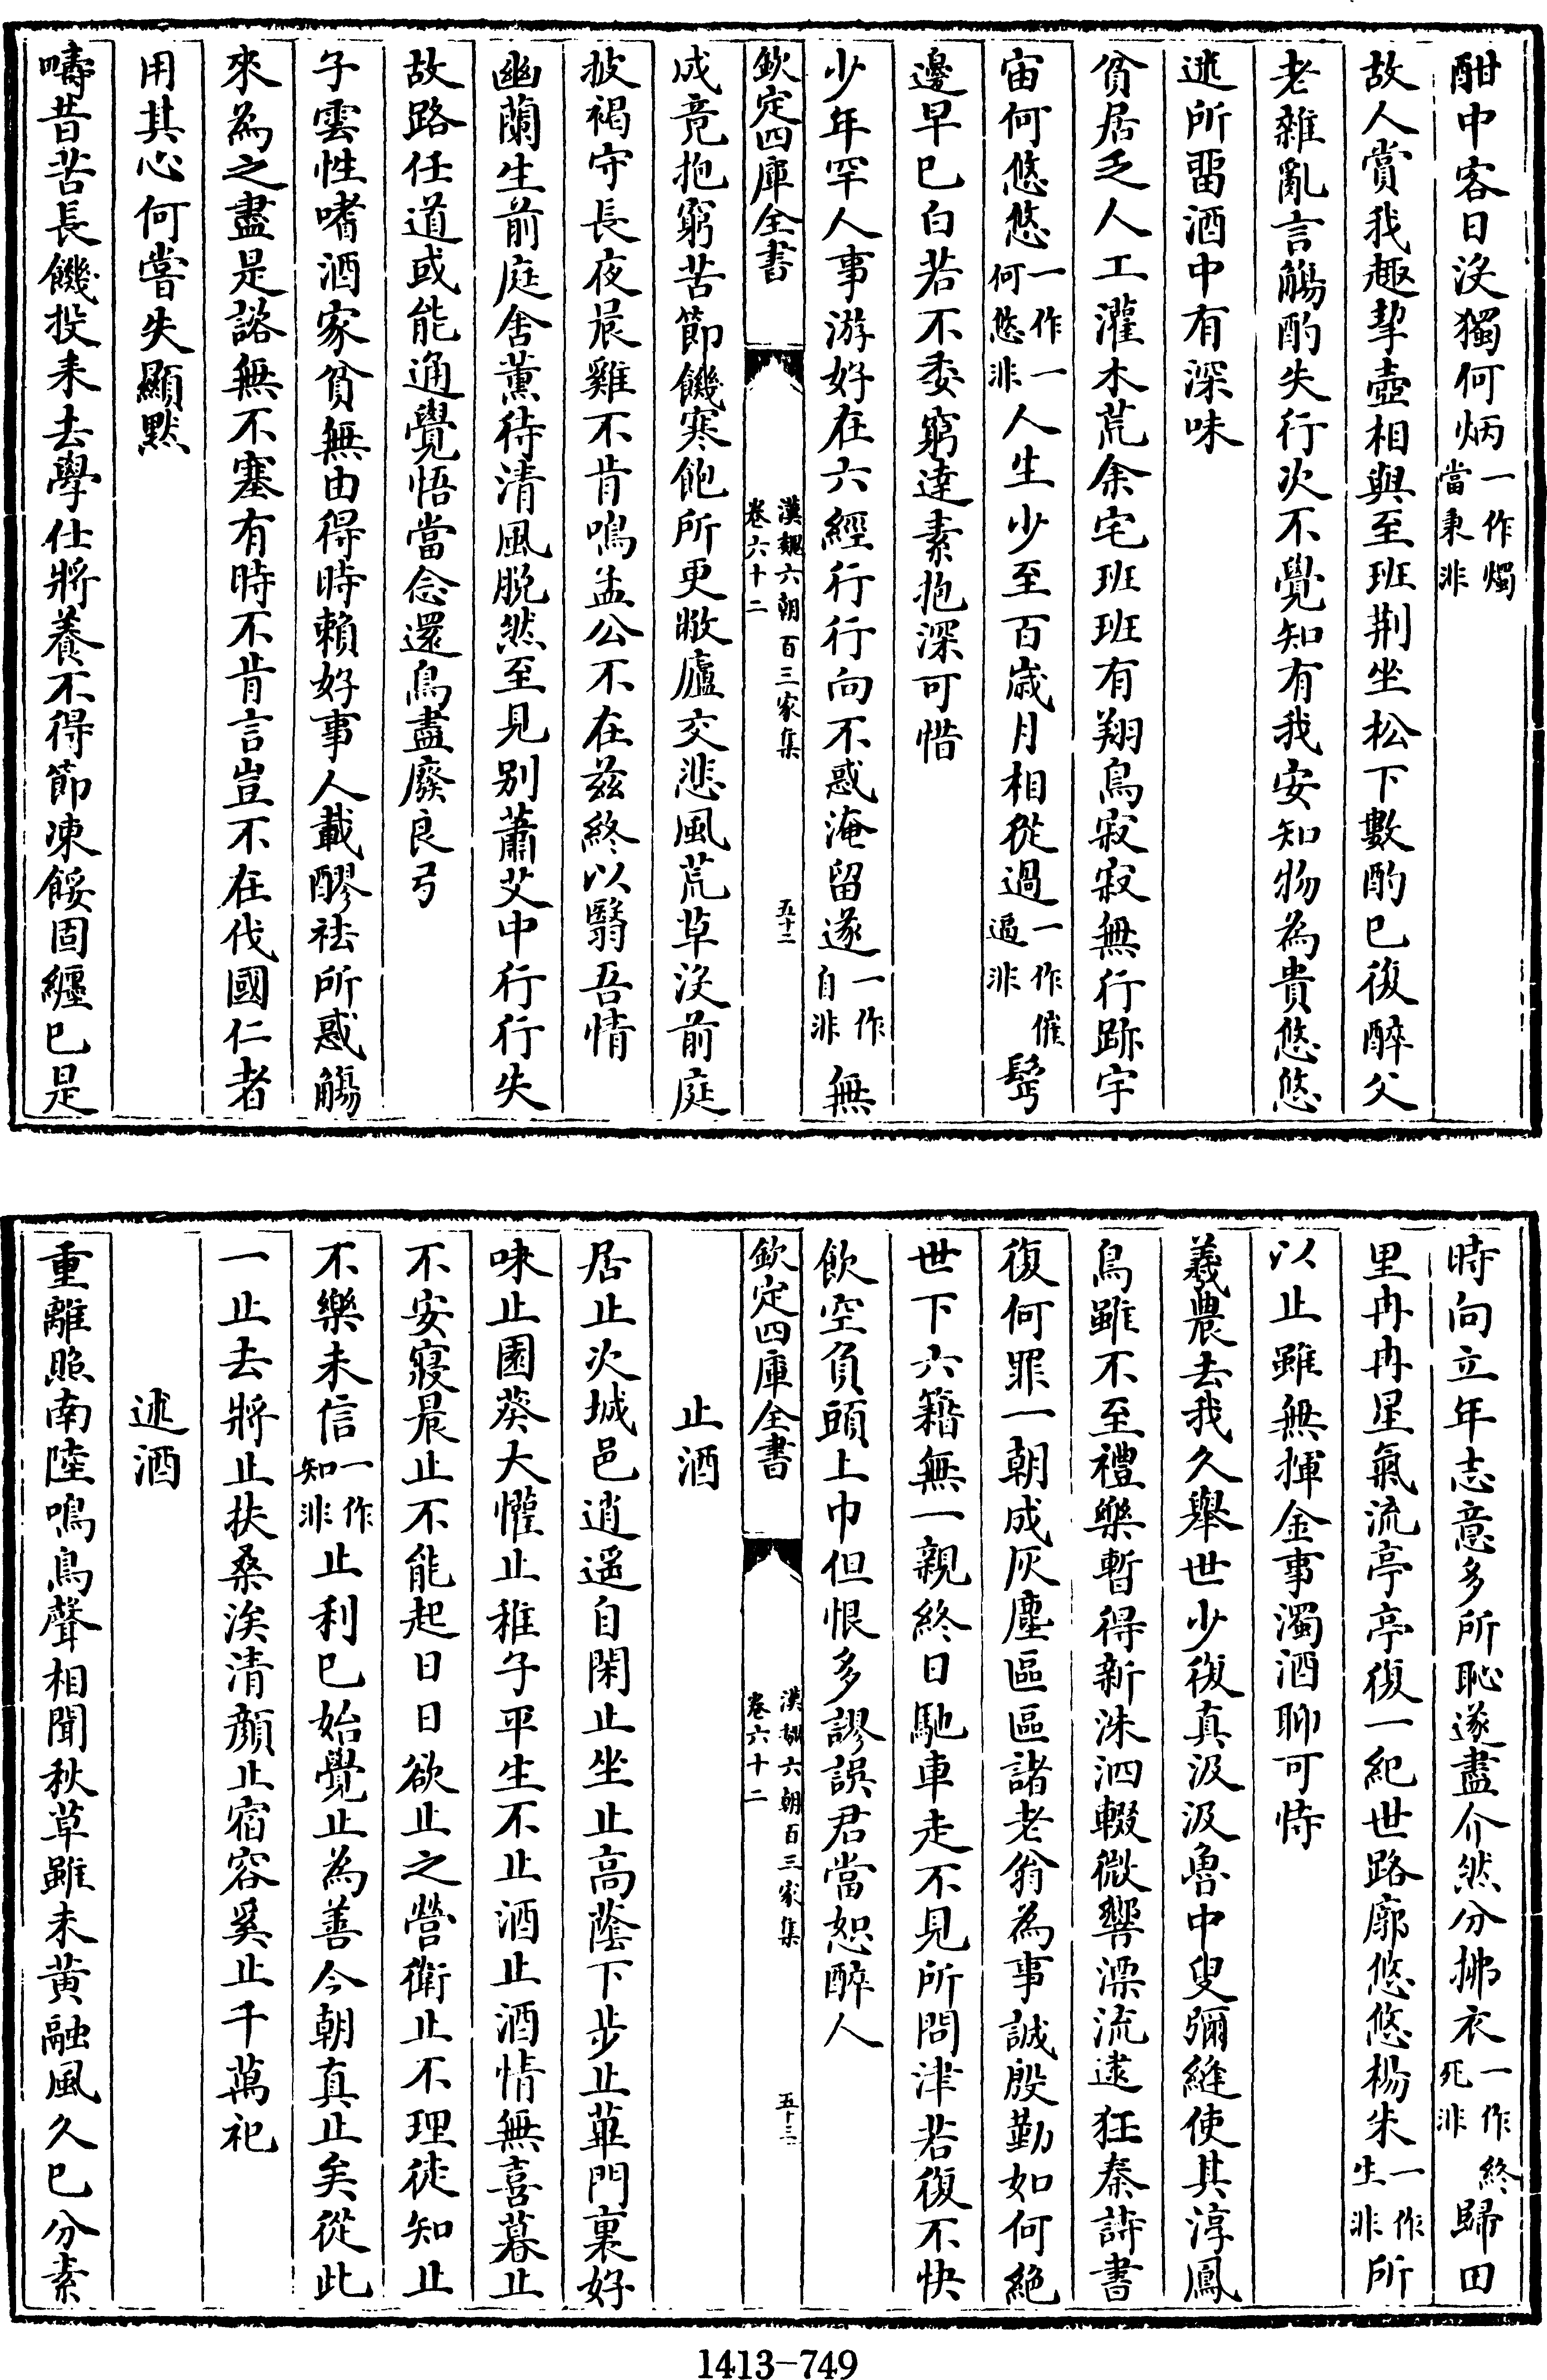 酣中客日没獨何炳一作燭當秉非
故人賞我趣挈壺相與至班荆坐松下數酌已復醉父
老雜亂言觴酌失行次不覺知有我安知物為貴悠悠
迷所留酒中有深味
貧居乏人工灌木荒余宅班班有翔鳥寂寂無行跡宇
宙何悠悠一作一何悠非人生少至百歳月相從過一作催逼非鬂
邊早已白若不委窮達素抱深可惜
少年罕人事游好在六經行行向不惑淹留遂一作自非無
欽定四庫全書 漢魏六朝百三家集卷六十二 五十二
成竟抱窮苦節饑寒飽所更敝廬交悲風荒草没前庭
披褐守長夜晨雞不肯鳴孟公不在兹終以翳吾情
幽蘭生前庭含薰待清風脱然至見别蕭艾中行行失
故路任道或能通覺悟當念還鳥盡廢良弓
子雲性嗜酒家貧無由得時賴好事人載醪祛所惑觴
來為之盡是諮無不塞有時不肯言豈不在伐國仁者
用其心何嘗失顯默
疇昔苦長饑投耒去學仕將養不得節凍餒固纒已是
時向立年志意多所恥遂盡介然分拂衣一作終死非歸田
里冉冉星氣流亭亭復一紀世路廓悠悠楊朱一作生非所
以止雖無揮金事濁酒聊可恃
羲農去我久舉世少復真汲汲魯中叟彌縫使其淳鳳
鳥雖不至禮樂暫得新洙泗輟微響漂流逮狂秦詩書
復何罪一朝成灰塵區區諸老翁為事誠殷勤如何絶
世下六籍無一親終日馳車走不見所問津若復不快
飲空負頭上巾但恨多謬誤君當恕醉人
欽定四庫全書 漢魏六朝百三家集卷六十二 五十三
止酒
居止次城邑逍遥自閑止坐止高蔭下步止蓽門裏好
味止園葵大懽止稚子平生不止酒止酒情無喜暮止
不安寢晨止不能起日日欲止之營衛止不理徒知止
不樂未信一作知非止利已始覺止為善今朝真止矣從此
一止去將止扶桑涘清顔止宿容奚止千萬祀
述酒
重離照南陸鳴鳥聲相聞秋草雖未黄融風久已分素
1413-749